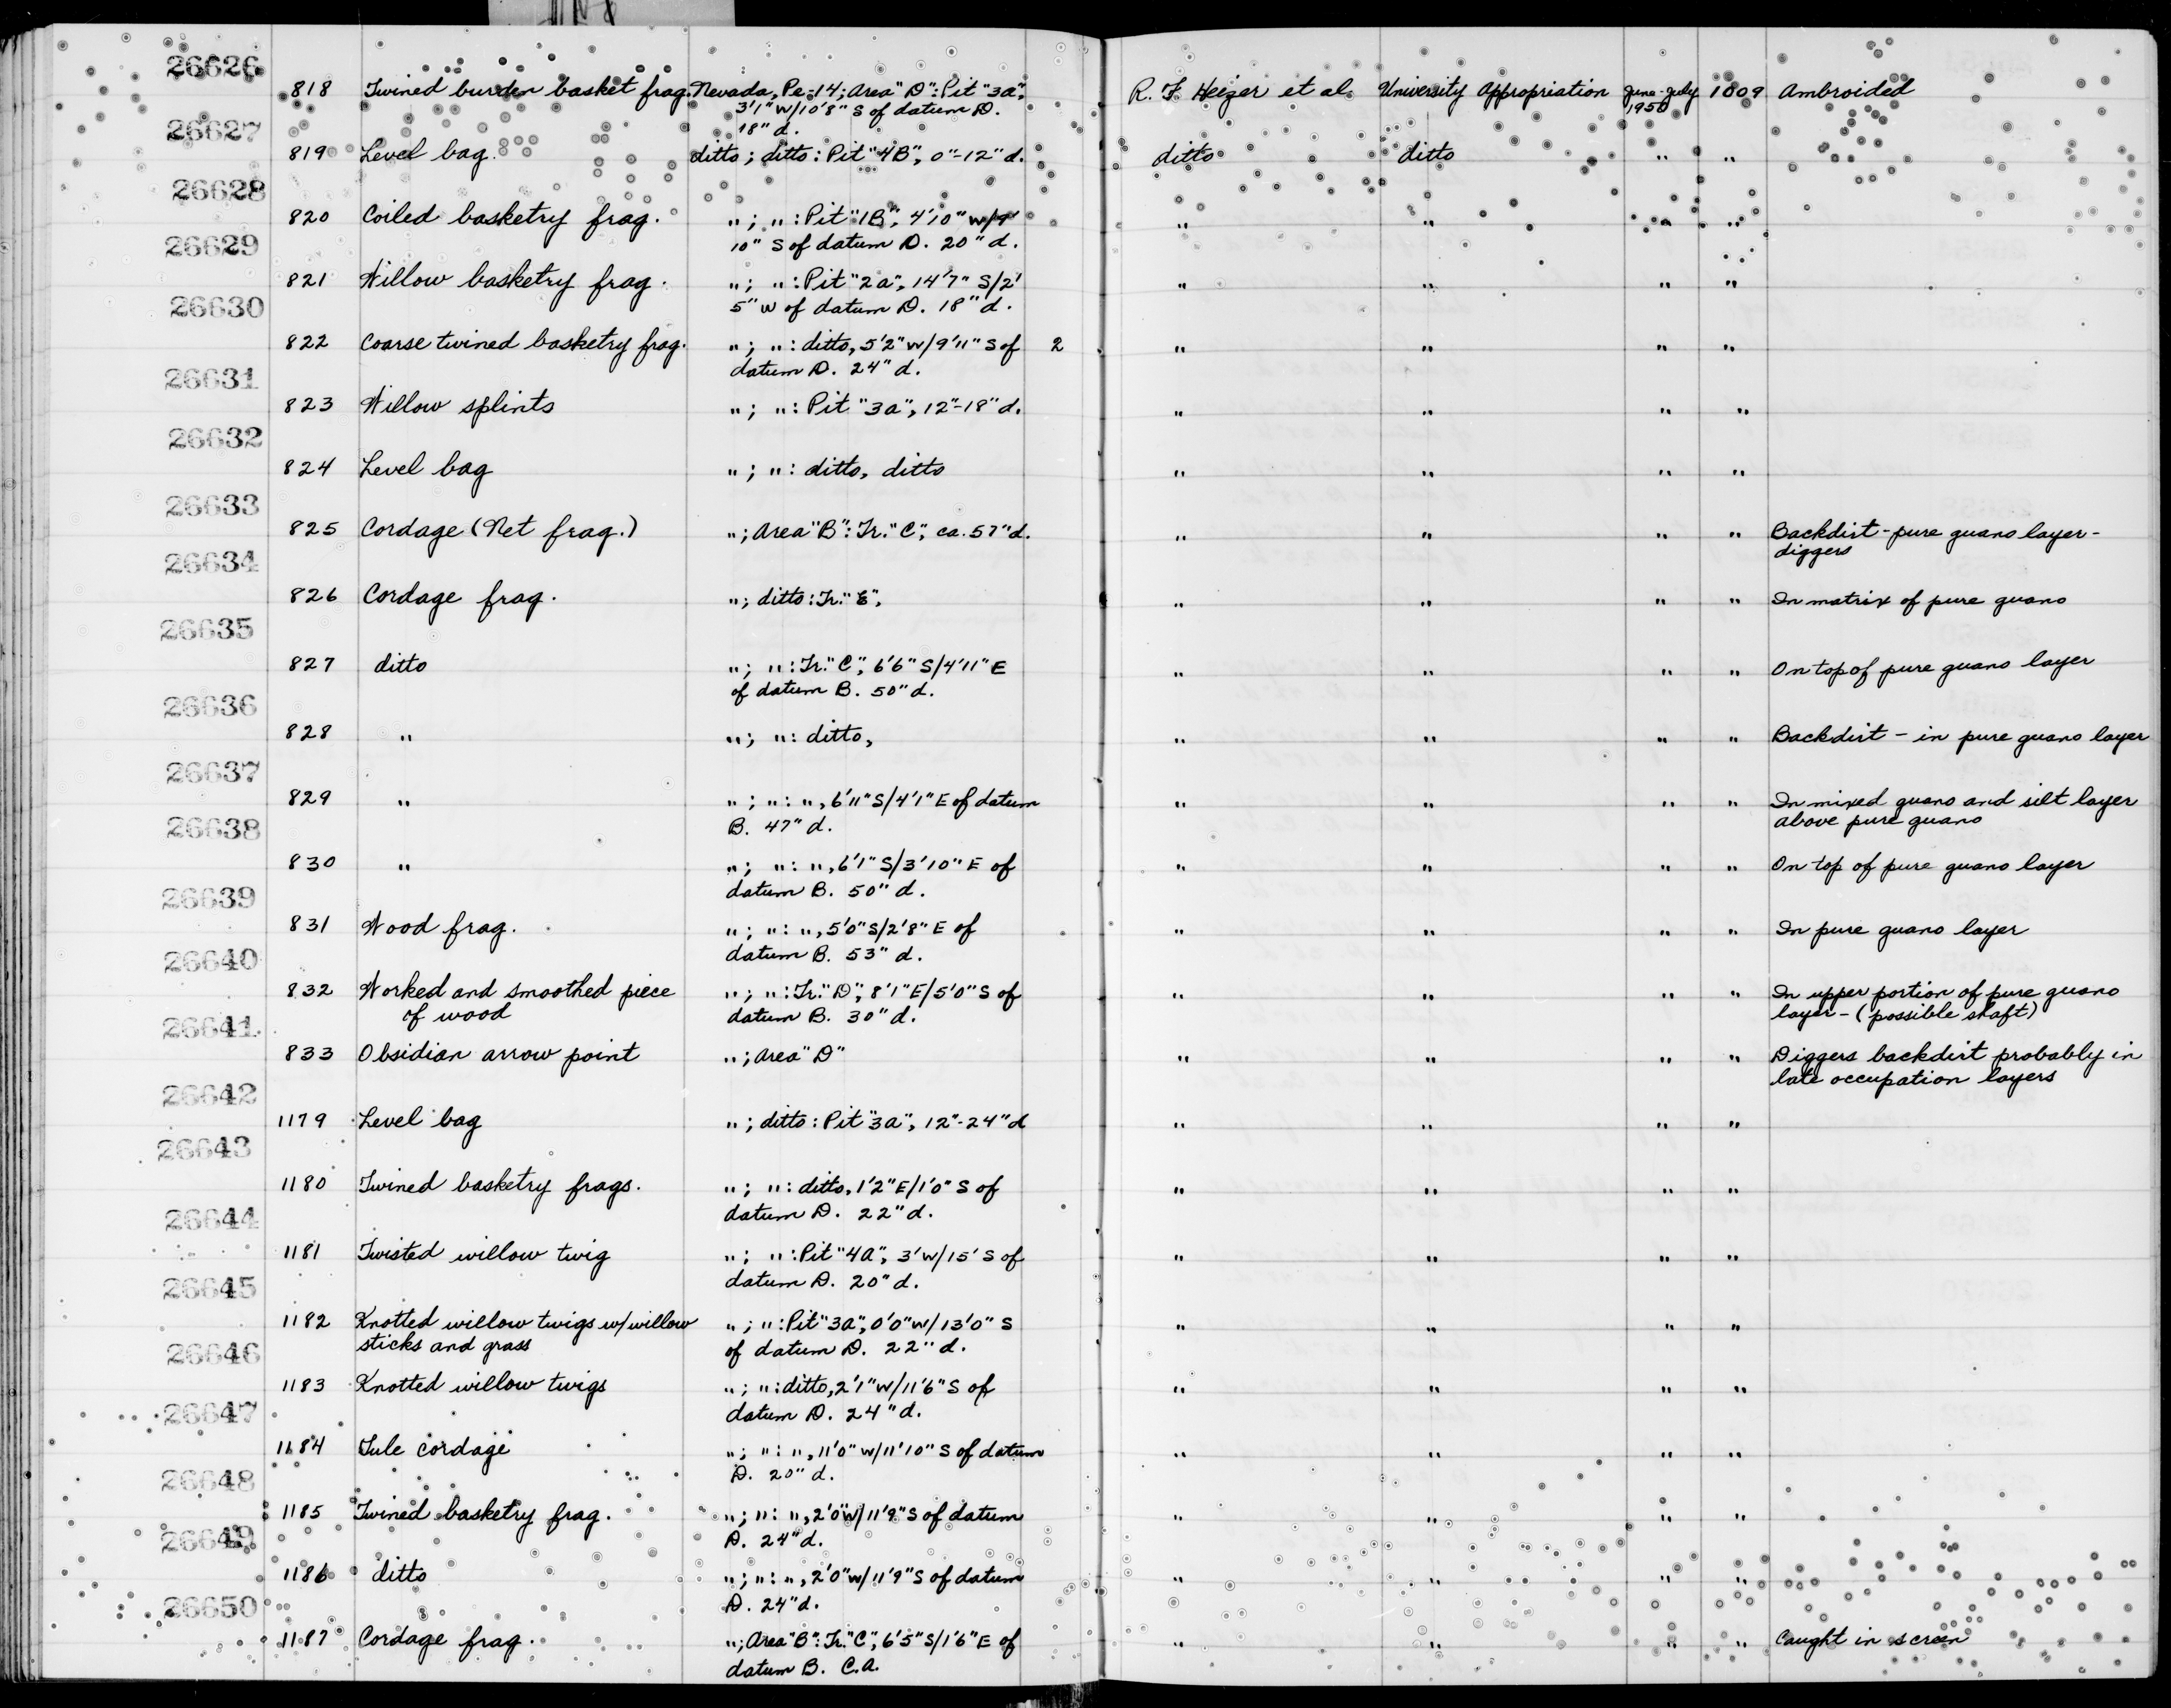 26626
818 Twined burden basket frag. Nevada, Pe-14; Area "D": Pit "3a", R. F. Heizer et al. University Appropriation June-July 1009 Ambroided
3'1" W/10'8" S of datum D. 1950
18" d.
26627
819 Level bag. ditto; ditto: Pit "4B", 0"-12" d. ditto ditto " "
26628
820 Coiled basketry frag. "; ": Pit "1B", 4'10" W/9' " " " "
10" S of datum D. 20" d.
26629
821 Willow basketry frag. "; ": Pit "2a", 14'7" S/2' " " " "
5" W of datum D. 18" d.
26630
822 Coarse twined basketry frag. "; ": ditto, 5'2" W/9'11" S of 2 " " " "
datum D. 24" d.
26631
823 Willow splints "; ": Pit "3a", 12"-18" d. " " " "
26632
824 Level bag "; ": ditto, ditto " " " "
26633
825 Cordage (Net frag.) "; Area "B": Tr. "C", ca. 57" d. " " " " Backdirt - pure guano layer -
diggers
26634
826 Cordage frag. "; ditto: Tr. "E", " " " " In matrix of pure guano
26635
827 ditto "; ": Tr. "C", 6'6" S/4'11" E " " " " On top of pure guano layer
of datum B. 50" d.
26636
828 " "; ": ditto, " " " " Backdirt - in pure guano layer
26637
829 " "; ": ", 6'11" S/4'1" E of datum " " " " In mixed guano and silt layer
B. 47" d. above pure guano
26638
830 " "; ": ", 6'1" S/3'10" E of " " " " On top of pure guano layer
datum B. 50" d.
26639
831 Wood frag. "; ": ", 5'0" S/2'8" E of " " " " In pure guano layer
datum B. 53" d.
26640
832 Worked and smoothed piece "; ": Tr. "D", 8'1" E/5'0" S of " " " " In upper portion of pure guano
of wood datum B. 30" d. layer - (possible shaft)
26641
833 Obsidian arrow point "; Area "D" " " " " Diggers backdirt probably in
late occupation layers
26642
1179 Level bag "; ditto: Pit "3a", 12"-24" d " " " "
26643
1180 Twined basketry frags. "; ": ditto, 1'2" E/1'0" S of " " " "
datum D. 22" d.
26644
1181 Twisted willow twig "; ": Pit "4A", 3' W/15' S of " " " "
datum D. 20" d.
26645
1182 Knotted willow twigs w/willow "; ": Pit "3a", 0'0" W/13'0" S " " " "
sticks and grass of datum D. 22" d.
26646
1183 Knotted willow twigs "; ": ditto, 2'1" W/11'6" S of " " " "
datum D. 24" d.
26647
1184 Tule cordage "; ": ", 11'0" W/11'10" S of datum " " " "
D. 20" d.
26648
1185 Twined basketry frag. "; ": ", 2'0" W/11'9" S of datum " " " "
D. 24" d.
26649
1186 ditto "; ": ", 2'0" W/11'9" S of datum " " " "
D. 24" d.
26650
1187 Cordage frag. "; Area "B": Tr. "C", 6'5" S/1'6" E of " " " " Caught in screen
datum B. C.A.